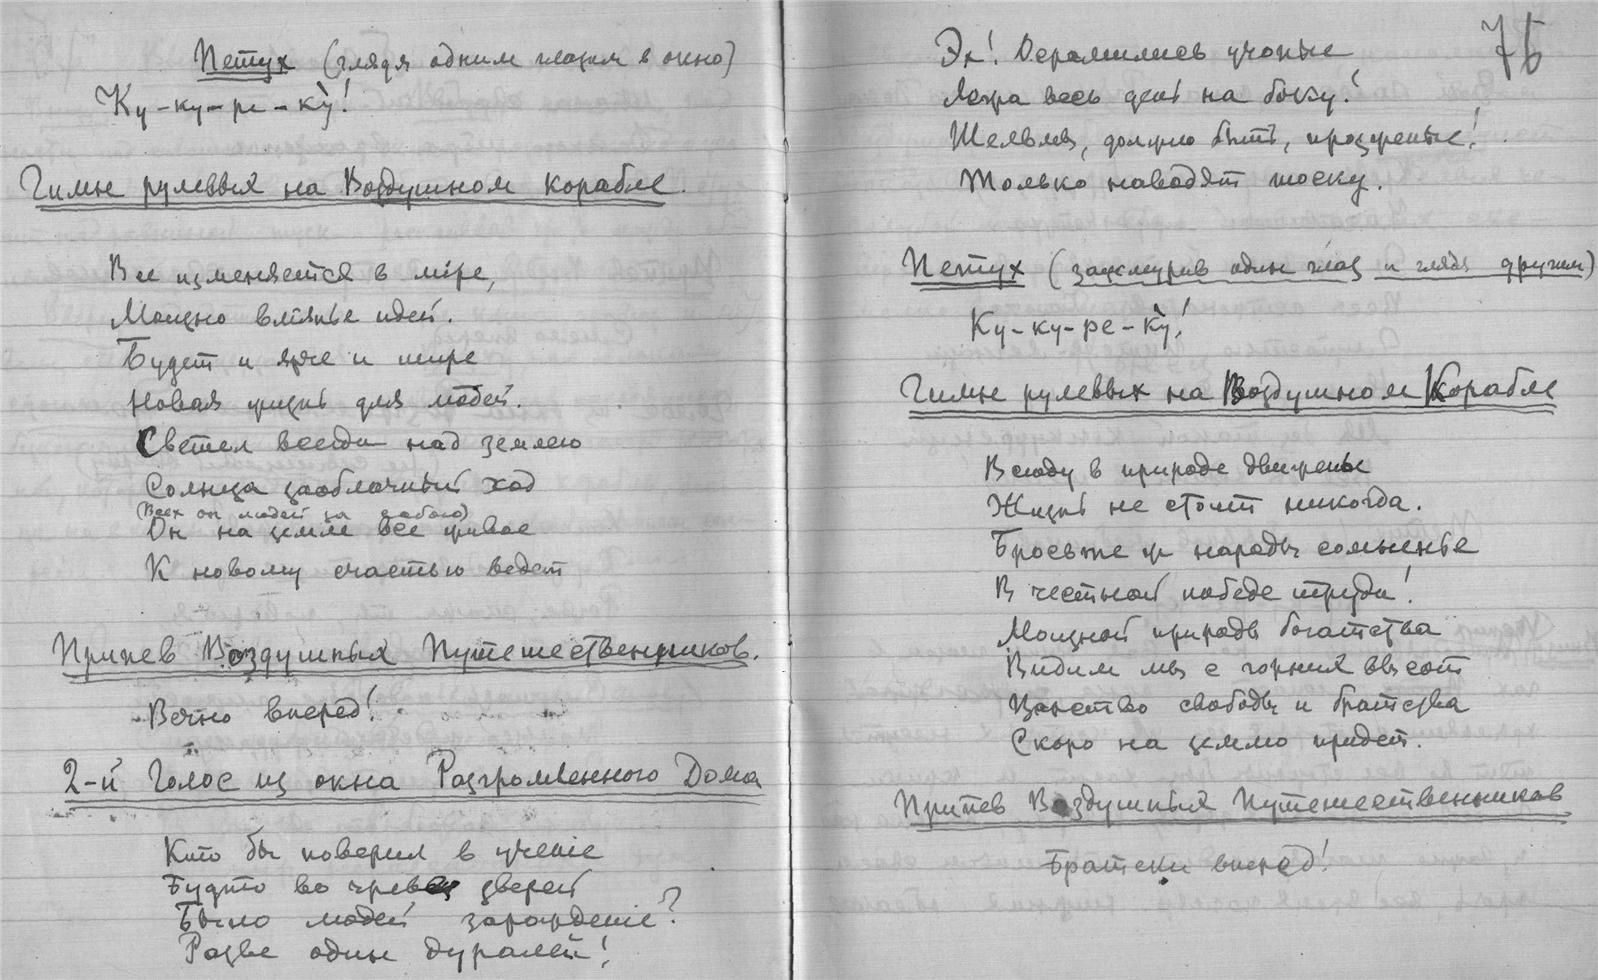 Петух (глядя одним глазом в окно)
Ку-ку-ре-ку̀!
Гимн рулевых на Воздушном корабле.
Все изменяется в мiре,
Мощно влiянье идей.
Будет и ярче и шире
Новая жизнь для людей.
Светел всегда над землею
Солнца заоблачный ход
(Всех он людей за собою)
Он на земле все живое
К новому счастью ведет
Припев Воздушных Путешественников.
Вечно вперед!
2-й Голос из окна Разгромленного Дома
Кто бы поверил в ученiе
Будто во чреве зверей
Было людей зарожденiе?
Разве один дуралей!
75
Эк! Осрамились ученые
Лежа весь день на боку!
Шельмы, должно быть, прожженые!
Только наводят тоску.
Петух (зажмурив один глаз и глядя другим)
Ку-ку-ре-ку̀!
Гимн рулевых на Воздушном Корабле
Всюду в природе движенье
Жизнь не стоит никогда.
Бросьте ж народы сомненье
В честной победе труда!
Мощной природы богатства
Видим мы с горних высот
Царство свободы и братства
Скоро на землю придет.
Припев Воздушных Путешественников
Братски вперед!